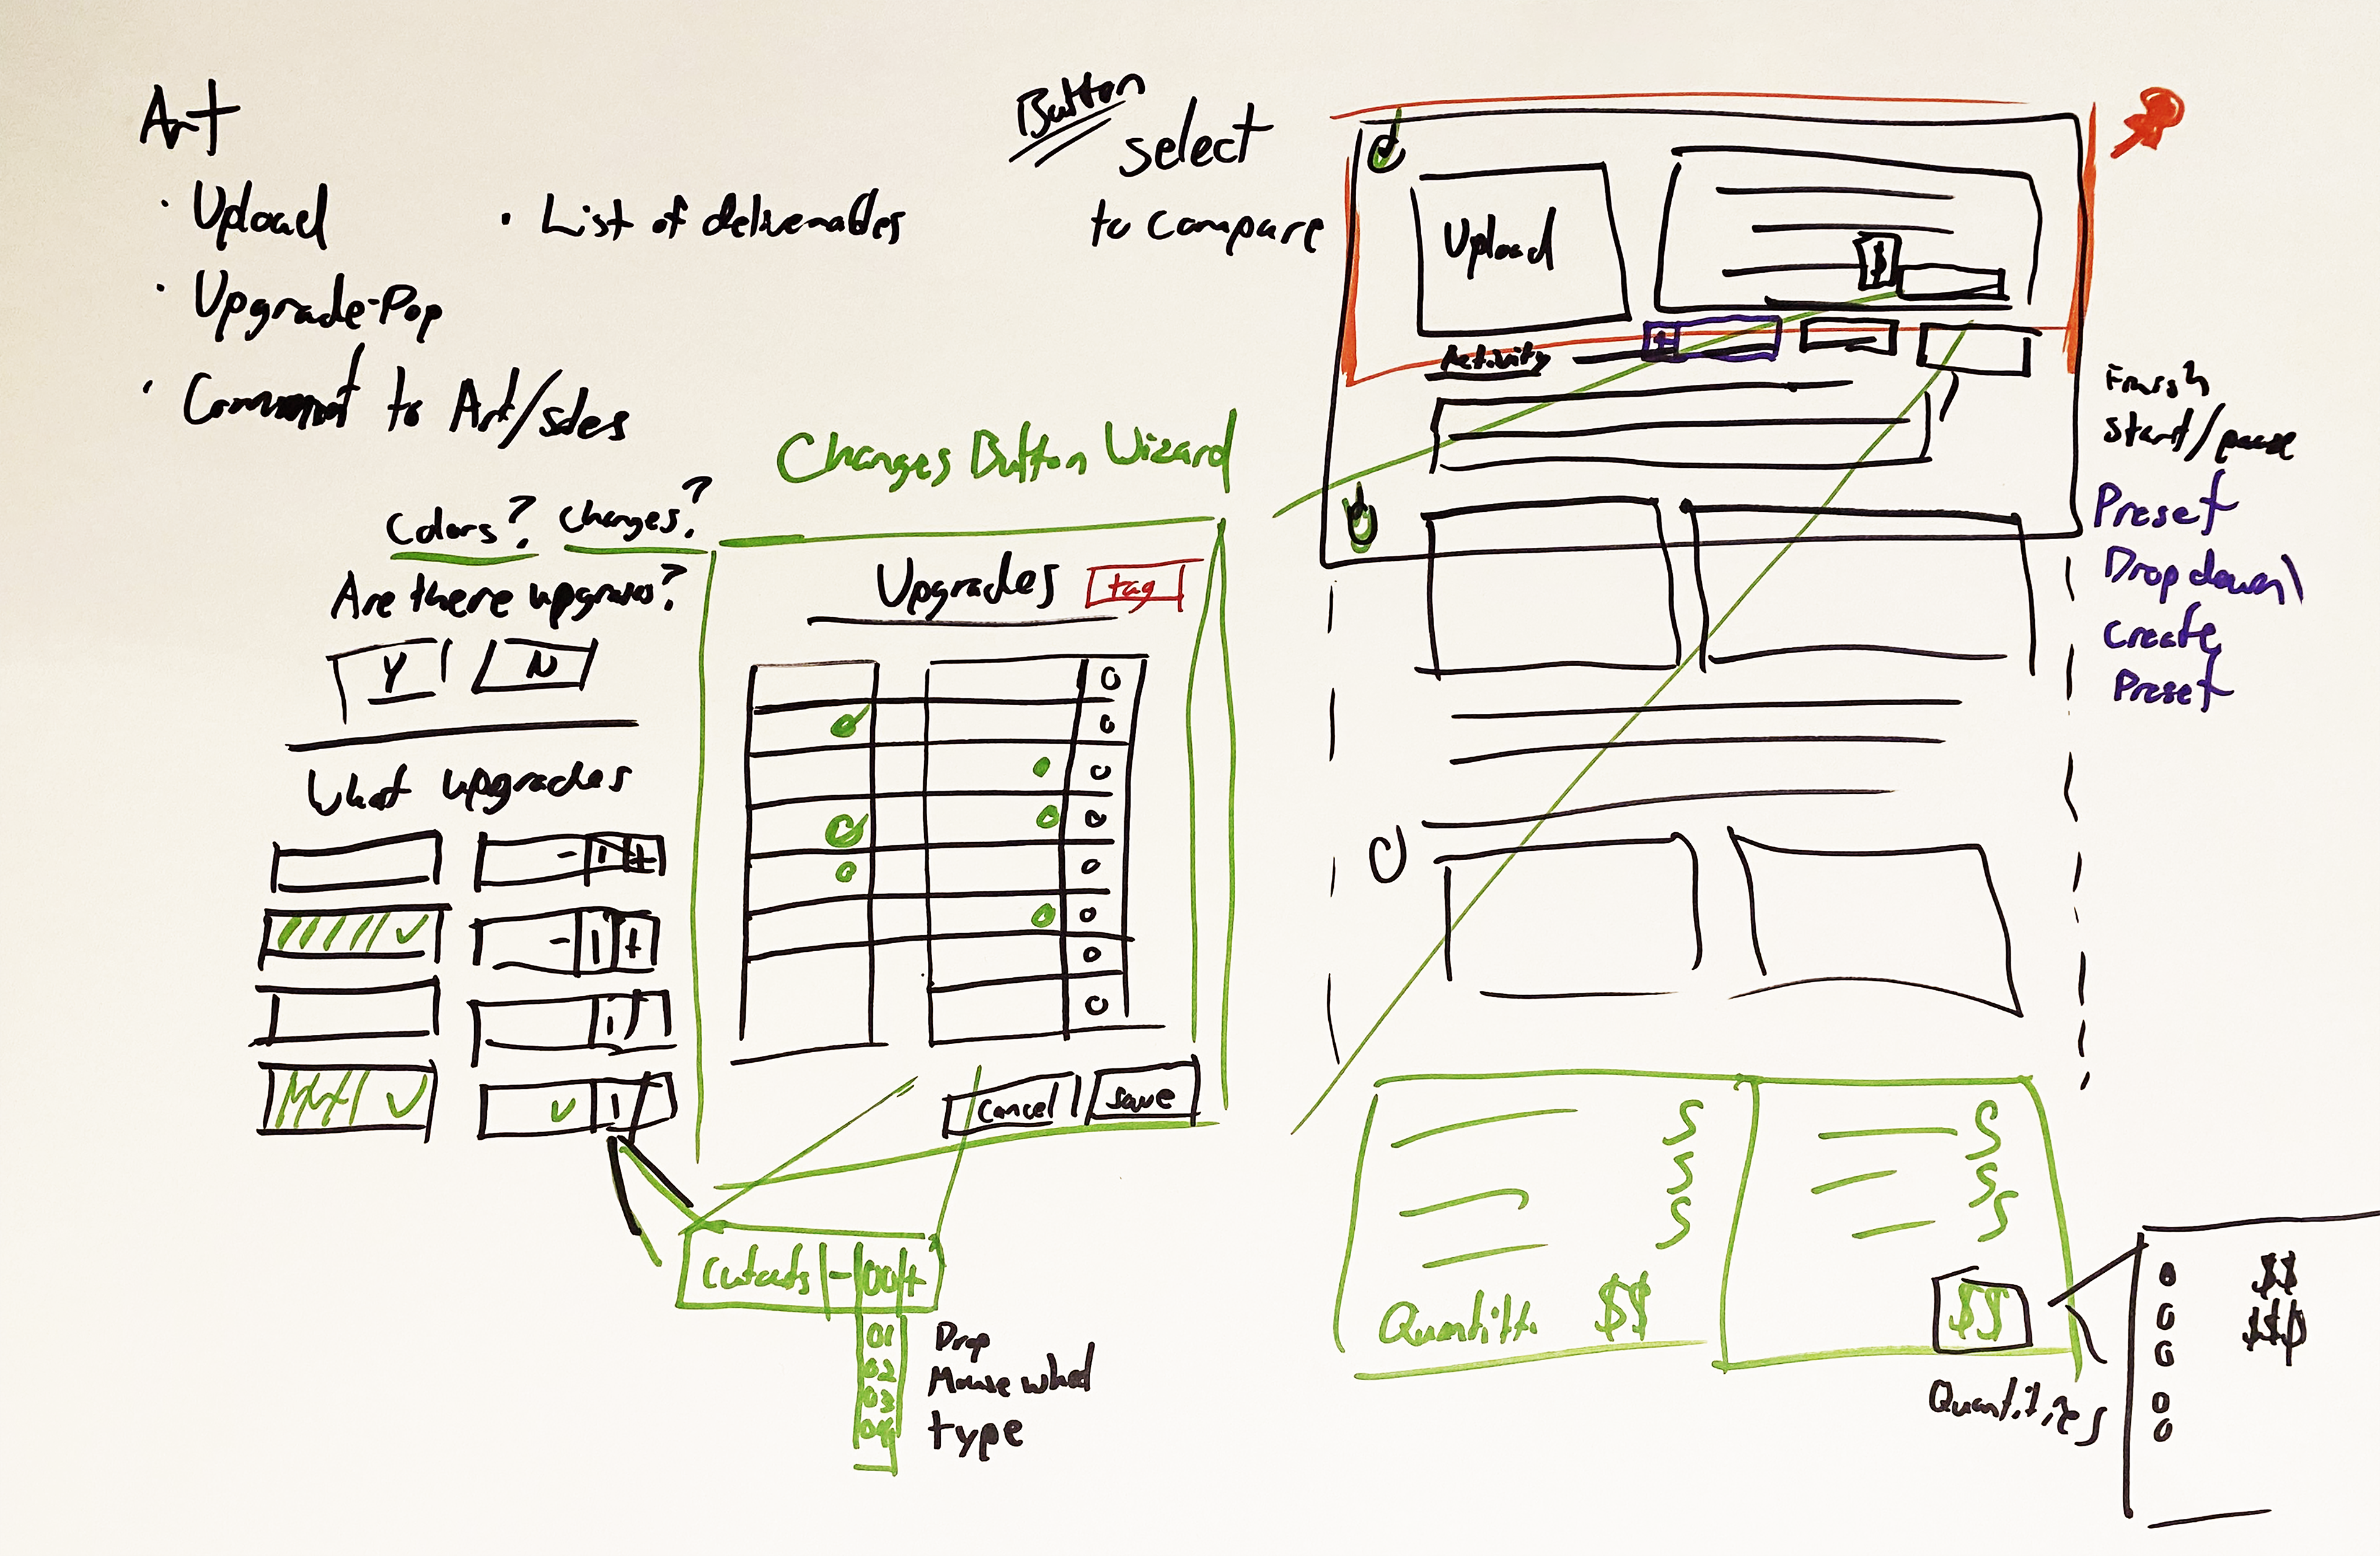 Art
· Upload
· List of deliverables
· Upgrade-Pop
· Comment to Art/sales
Button
select
to compare
Upload
$
+
Activity
Finish
Start/pause
Preset
Dropdown\
Create
Preset
Changes Button Wizard
Colors? Changes?
Are there upgrades?
Y N
What upgrades
- 1 +
- 1 +
1
1
Upgrades
tag
Cancel
Save
- 00 +
01
02
03
04
Drop
Mouse wheel
type
S S
S S
S S
$$
$$
Quantities
$$
$$$